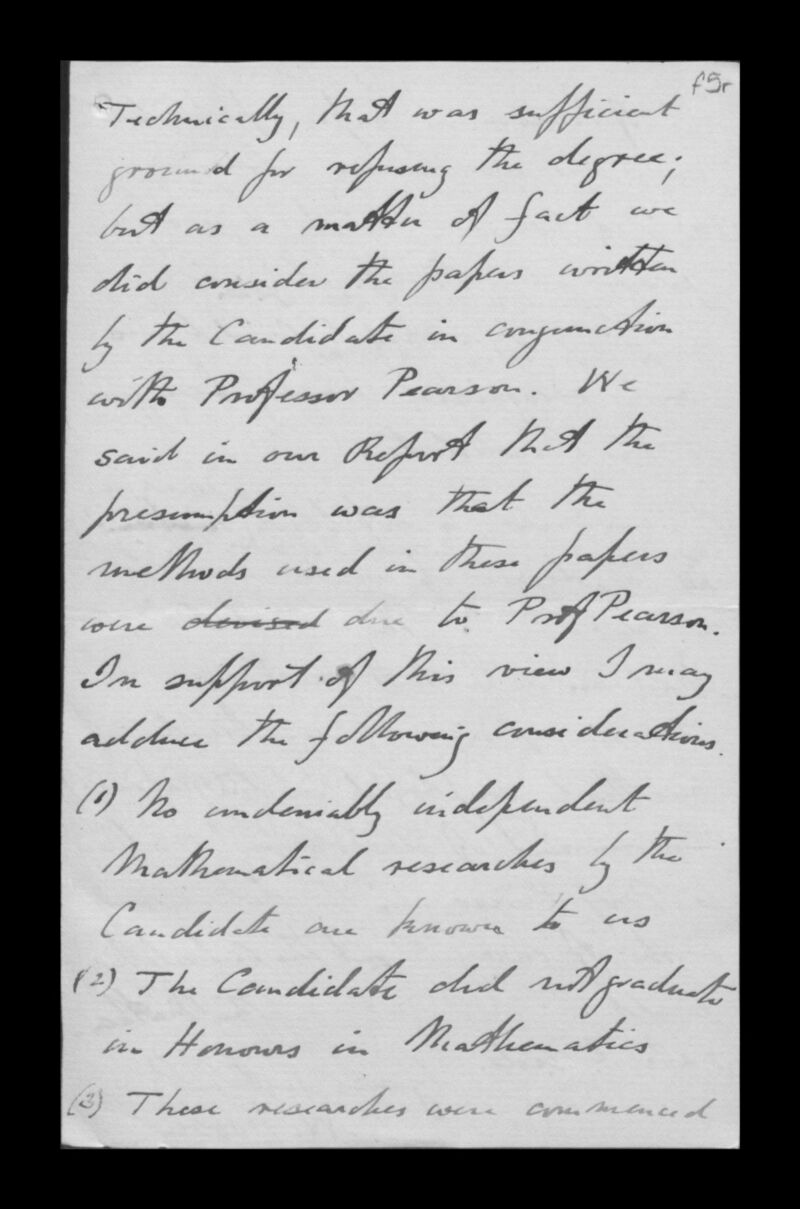 f5r
Technically, that was sufficient
ground for refusing the degree;
but as a matter of fact we
did consider the papers written
by the Candidate in conjunction
with Professor Pearson. We
said in our Report that the
presumption was that the
methods used in these papers
were devised due to Prof Pearson.
In support of this view I may
adduce the following considerations.
(1) No undeniably independent
Mathematical researches by the
Candidate are known to us
(2) The Candidate did not graduate
in Honours in Mathematics
(3) These researches were commenced